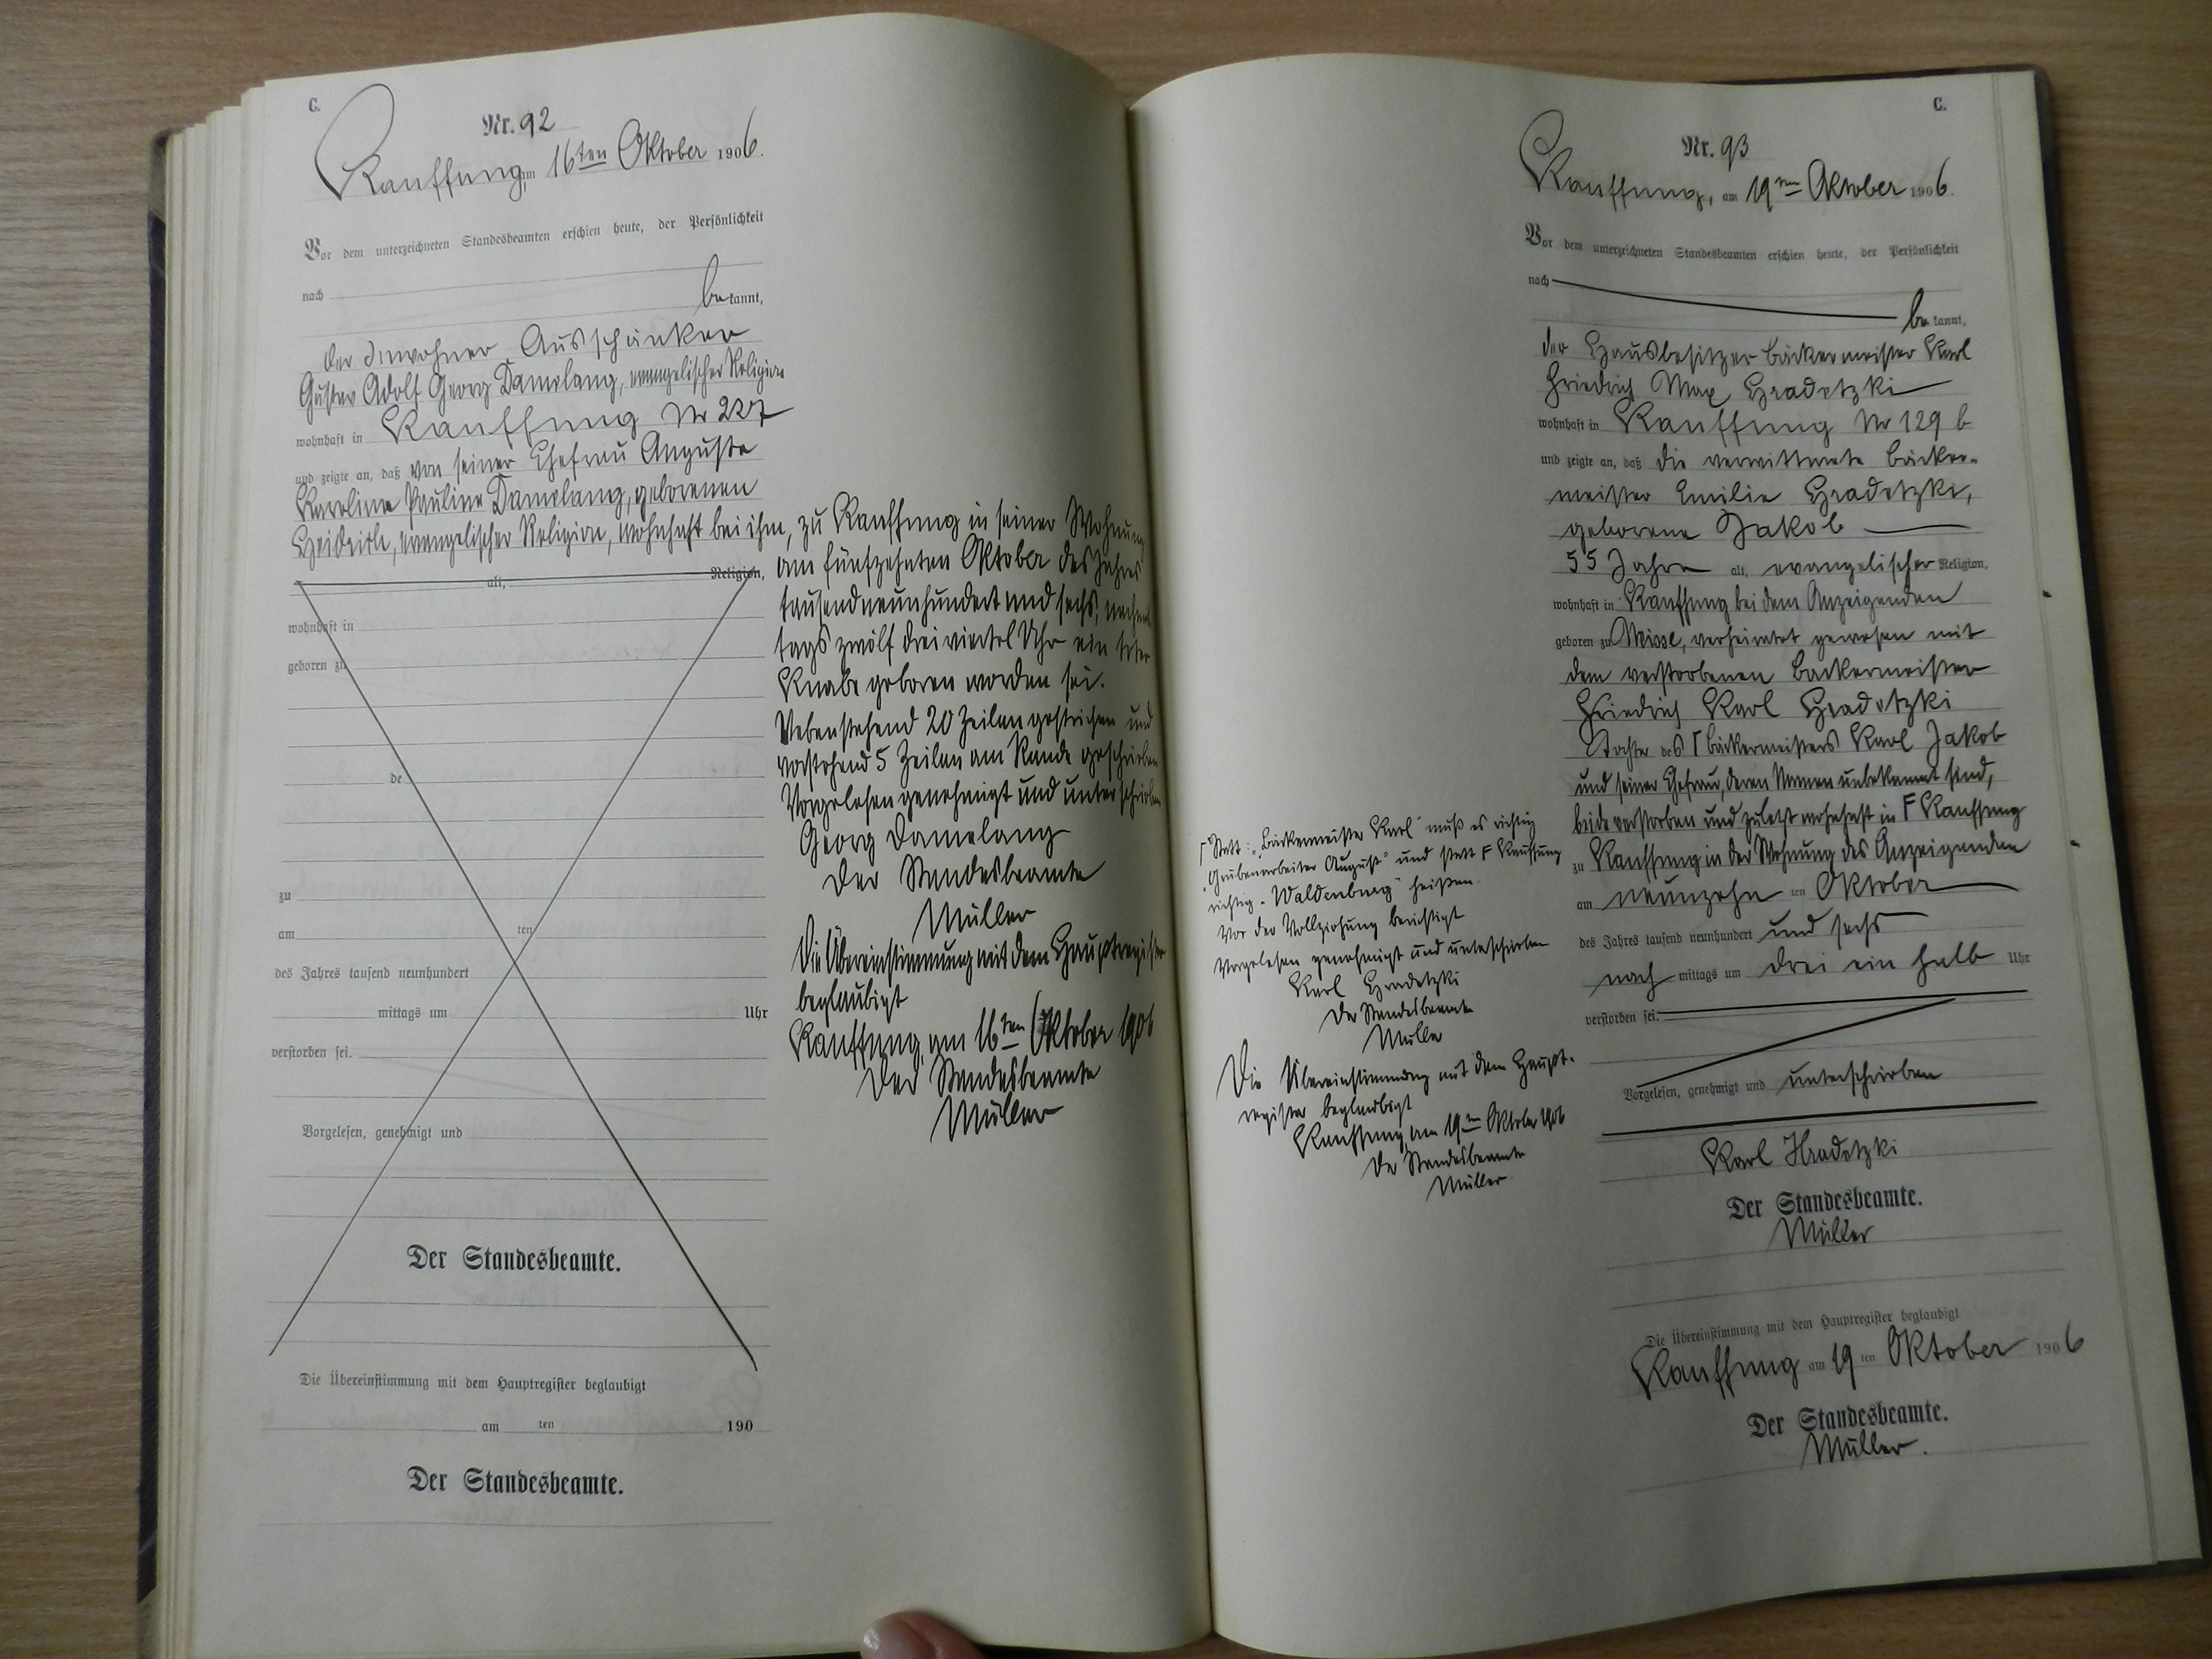 C.
Nr. 92
Kauffung, am 16ten Oktober 1906.
Vor dem unterzeichneten Standesbeamten erschien heute, der Persönlichkeit
nach
bekannt,
der Inwohner Ausschänker
Gustav Adolf Georg Damelang, evangelischer Religion
wohnhaft in Kauffung Nr 227
und zeigte an, daß von seiner Ehefrau Auguste
Karoline Pauline Damelang, geborenen
evangelischer Religion, wohnhaft bei ihm, zu Kauffung in seiner Wohnung
am fünfzehnten Oktober des Jahres
tausendneunhundert und sechs, nachmit
tags zwölf dreiviertel Uhr ein toter
Knabe geboren worden sei.
Nebenstehend 20 Zeilen gestrichen und
vorstehend 5 Zeilen am Rande geschrieben
Vorgelesen genehmigt und unterschrieben
Georg Damelang
Der Standesbeamte
Müller
Die Übereinstimmung mit dem Hauptregister
beglaubigt
Kauffung, am 16ten Oktober 1906
Der Standesbeamte
Müller
alt, Religion,
wohnhaft in
geboren zu
de
zu
am ten
des Jahres tausend neunhundert
mittags um Uhr
verstorben sei.
Vorgelesen, genehmigt und
Der Standesbeamte.
Die Übereinstimmung mit dem Hauptregister beglaubigt
am ten 190
Der Standesbeamte.
C.
Nr. 93
Kauffung, am 19ten Oktober 1906.
Vor dem unterzeichneten Standesbeamten erschien heute, der Persönlichkeit
nach
bekannt,
der Hausbesitzer Bäckermeister Karl
Friedrich Max Hradetzki
wohnhaft in Kauffung Nr 129 b
und zeigte an, daß die verwittwete Bäcker-
meister Emilie Hradetzki,
geborene Jakob
55 Jahre alt, evangelischer Religion,
wohnhaft in Kauffung bei dem Anzeigenden
geboren zu verheiratet gewesen mit
dem verstorbenen Bäckermeister
Friedrich Karl Hradetzki
Tochter des Γ Bäckermeisters Karl Jakob
und seiner Ehefrau, deren Namen unbekannt sind,
beide verstorben und zuletzt wohnhaft in F Kauffung
zu Kauffung in der Wohnung des Anzeigenden
am neunzehn ten Oktober
des Jahres tausend neunhundert und sechs
nach mittags um drei ein halb Uhr
verstorben sei.
Vorgelesen, genehmigt und unterschrieben
Karl Hradetzki
Der Standesbeamte.
Müller
Die Übereinstimmung mit dem Hauptregister beglaubigt
Kauffung am 19 ten Oktober 1906
Der Standesbeamte.
Müller.
Γ Statt: „Bäckermeister Karl" muß es richtig
„Grubenarbeiter August" und statt F Kauffung
richtig „Waldenburg" heißen.
Vor der Vollziehung berichtigt
Vorgelesen genehmigt und unterschrieben
Karl Hradetzki
Der Standesbeamte
Müller
Die Übereinstimmung mit dem Haupt-
register beglaubigt
Kauffung am 19ten Oktober 1906
Der Standesbeamte
Müller